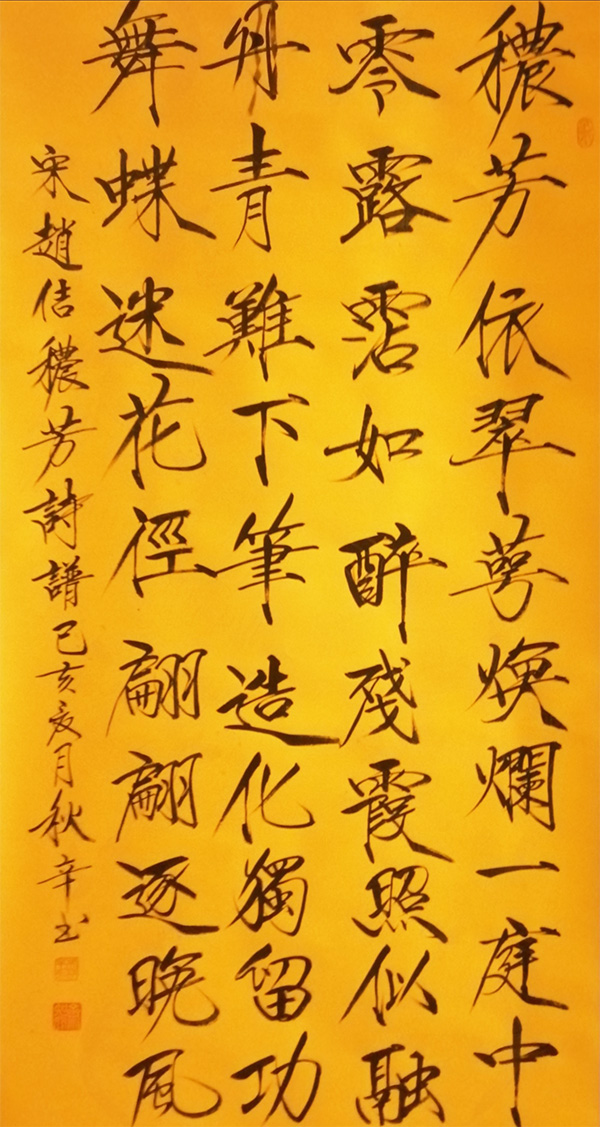 穠芳依翠萼煥爛一庭中
零露霑如醉殘霞照似融
丹青難下筆造化獨留功
舞蝶迷花徑翩翩逐晚風
宋趙佶穠芳詩譜己亥夏月秋辛书